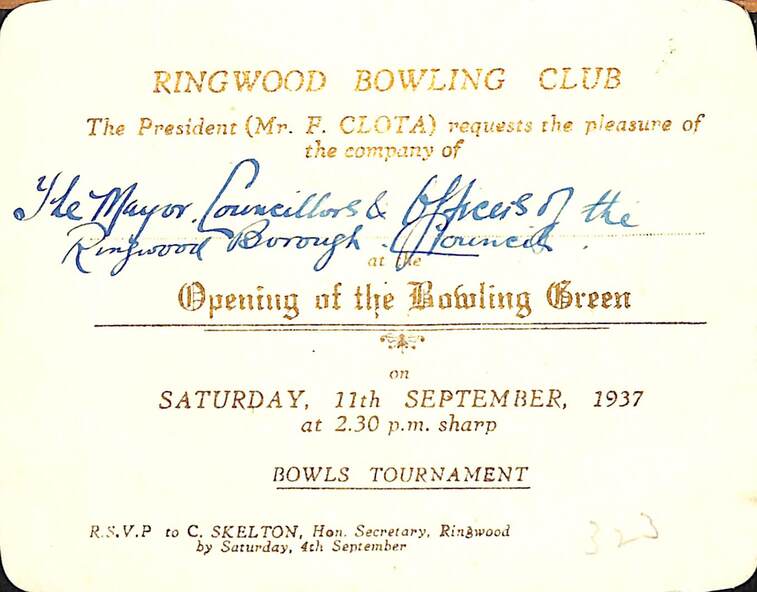 RINGWOOD BOWLING CLUB
The President (Mr. F. CLOTA) requests the pleasure of
the company of
The Mayor, Councillors & Officers of the
Ringwood Borough Council.
at the
Opening of the Bowling Green
on
SATURDAY, 11th SEPTEMBER, 1937
at 2.30 p.m. sharp
BOWLS TOURNAMENT
R.S.V.P to C. SKELTON, Hon. Secretary, Ringwood
by Saturday, 4th September
323